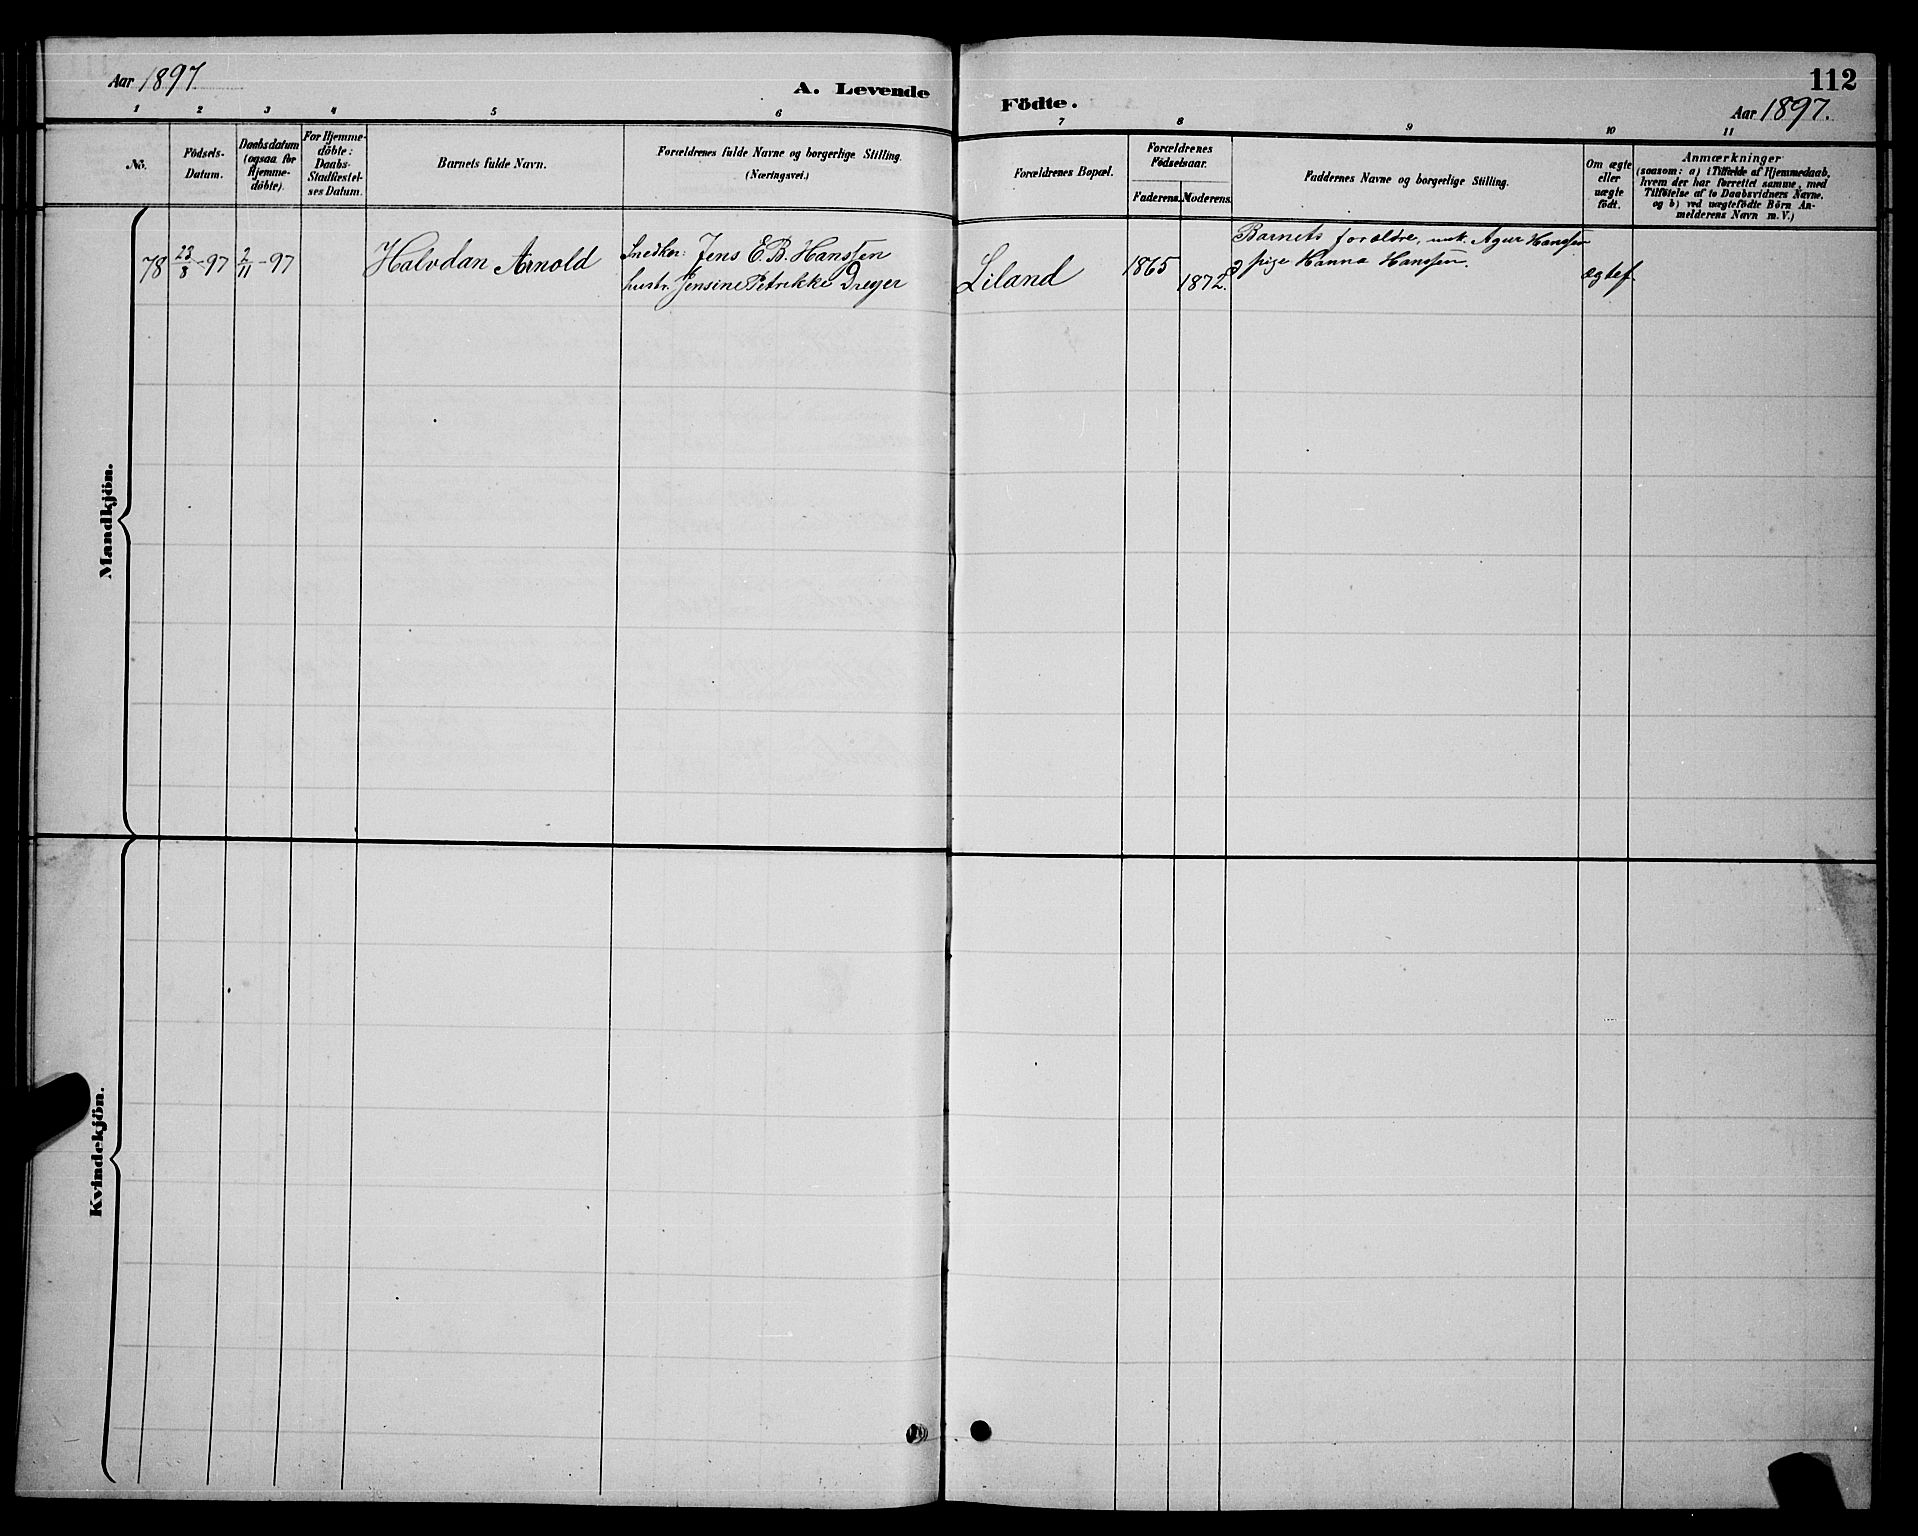 Aar 1897
A. Levende
Födte.
112
Aar 1897.
1 2 3 4 5 6 7 8 9 10 11
No.
Födsels-
Datum.
Daabsdatum
(ogsaa for
Hjemme-
döbte).
For Hjemme-
döbte:
Daabs-
Stadfæstel-
ses Datum.
Barnets fulde Navn.
Forældrenes fulde Navne og borgerlige Stilling.
(Næringsvei.)
Forældrenes Bopæl.
Forældrenes
Födselsaar.
Faderens. Moderens.
Faddernes Navne og borgerlige Stilling.
Om ægte
eller
uægte
födt.
Anmærkninger
(saasom: a) i Tilfælde af Hjemmedaab,
hvem der har forrettet samme, med
Tilföielse af to Daabsvidners Navne,
og b) ved uægtefödte Börn An-
melderens Navn m. V.)
Mandkjön.
78 23/8-97 2/11-97 Halvdan Arnold
Snedker: Jens E. B. Hansten
hustr. Jensine Petrikke Dreyer
Liland
1865
1872.
Barnets forældre, unk. Agur Hanssen
pige Hanna Hanssen.
ægtef
Kvindekjön.